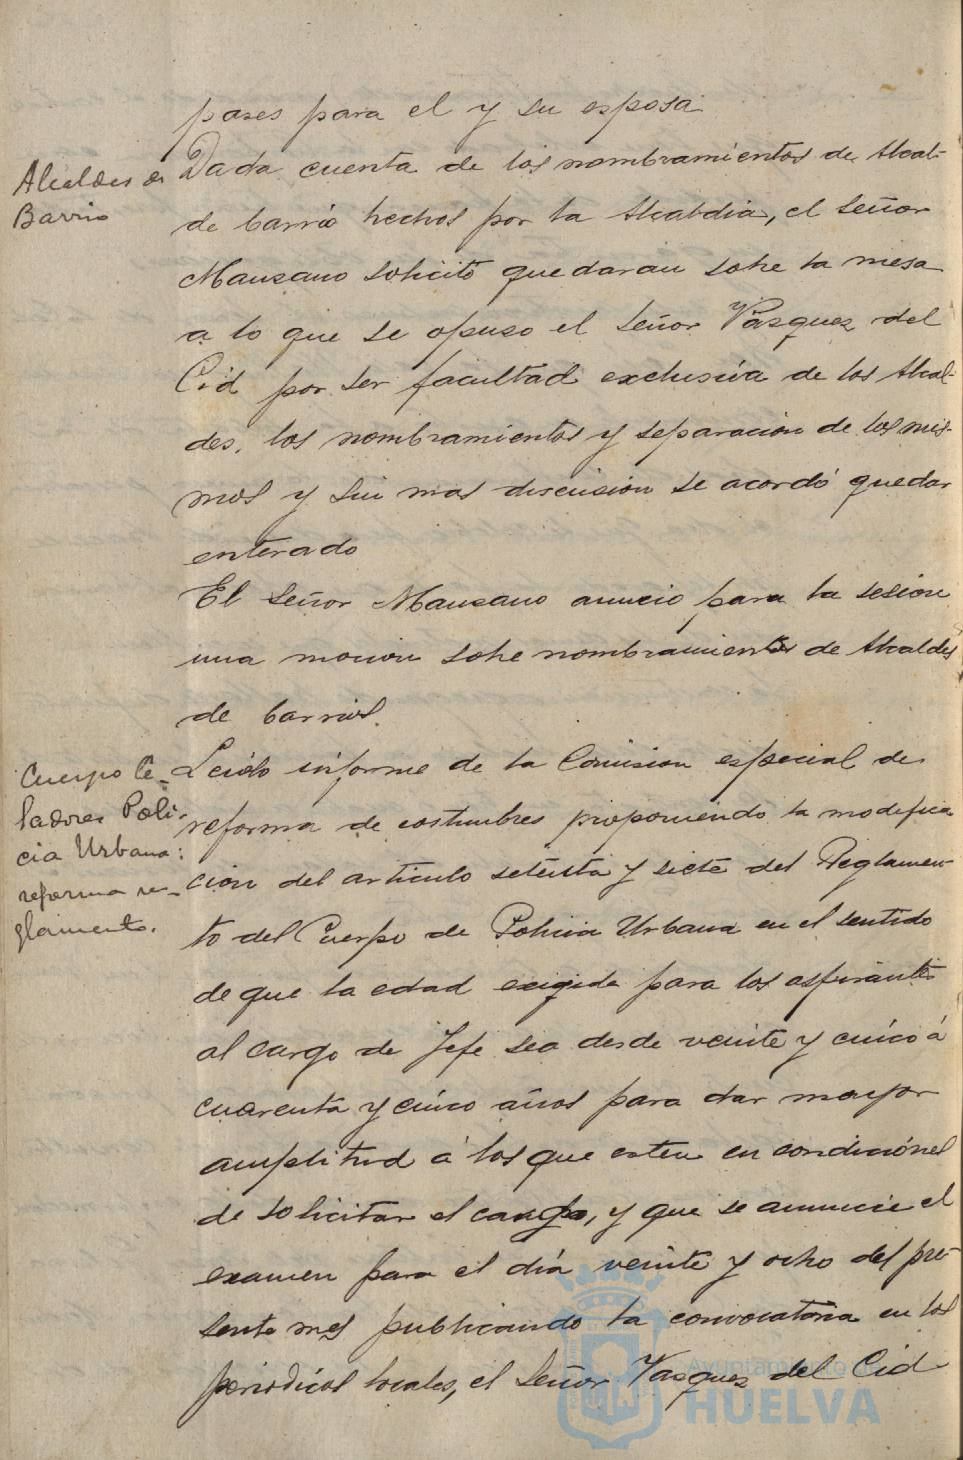 pases para el y su esposa
Alcaldes de
Barrio
Dada cuenta de los nombramientos de Alcal-
de barrio hechos por la Alcaldia, el señor
Manzano solicitó quedaran sobre la mesa
a lo que se opuso el señor Vázquez del
Cid por ser facultad exclusiva de los Alcal-
des, los nombramientos y separacion de los mis-
mos y sin mas discusion se acordó quedar
enterado
El señor Manzano anunció para la sesion
una mocion sobre nombramientos de Alcaldes
de barrios.
Cuerpo Ce-
ladores Poli-
cia Urbana:
reforma re-
glamento.
Leido informe de la Comision especial de
reforma de costumbres proponiendo la modifica
cion del articulo setenta y siete del Reglamen-
to del Cuerpo de Policia Urbana en el sentido
de que la edad exigida para los aspirantes
al cargo de Jefe sea desde veinte y cinco á
cuarenta y cinco años para dar mayor
amplitud á los que esten en condiciones
de solicitar el cargo, y que se anuncie el
examen para el día veinte y ocho del pre-
sente mes publicando la convocatoria en los
periodicos locales, el Señor Vazquez del Cid
Ayuntamiento de
HUELVA